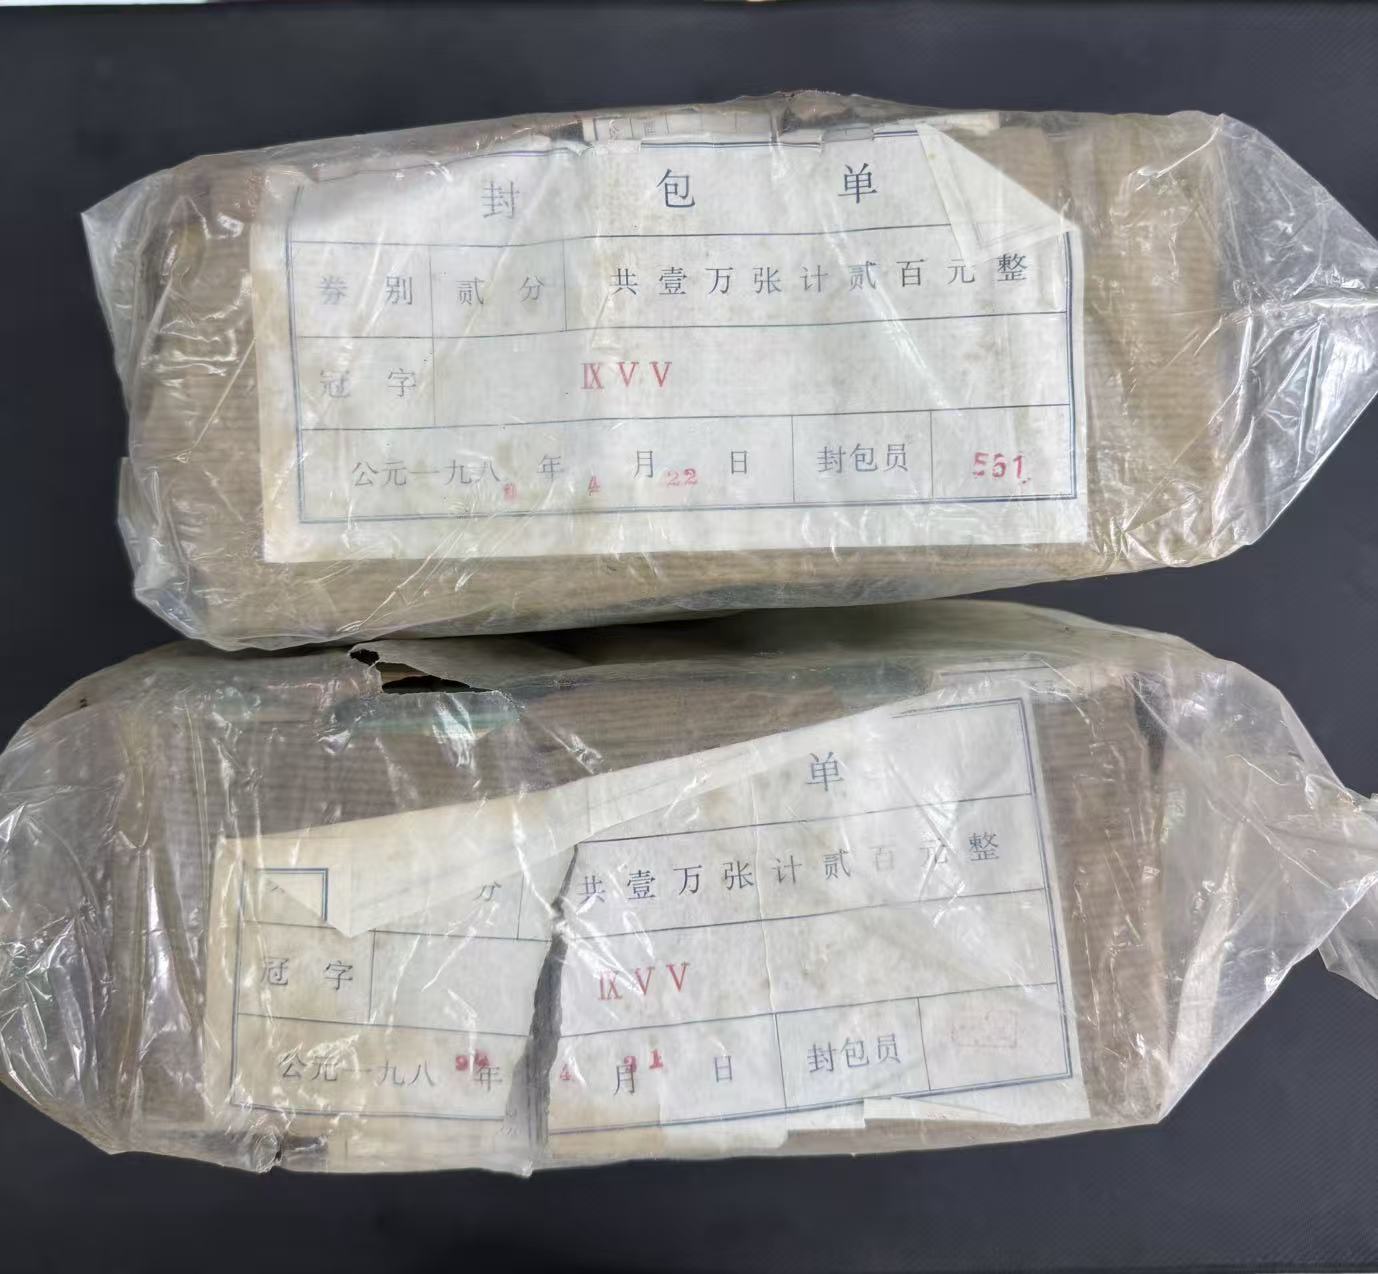 封包单
券别 贰分 共壹万张计贰百元整
冠字 ⅨⅤⅤ
公元一九八 年 4 月 22 日 封包员 551
单
分 共壹万张计贰百元整
冠字 ⅨⅤⅤ
公元一九八 年 4 月 日 封包员